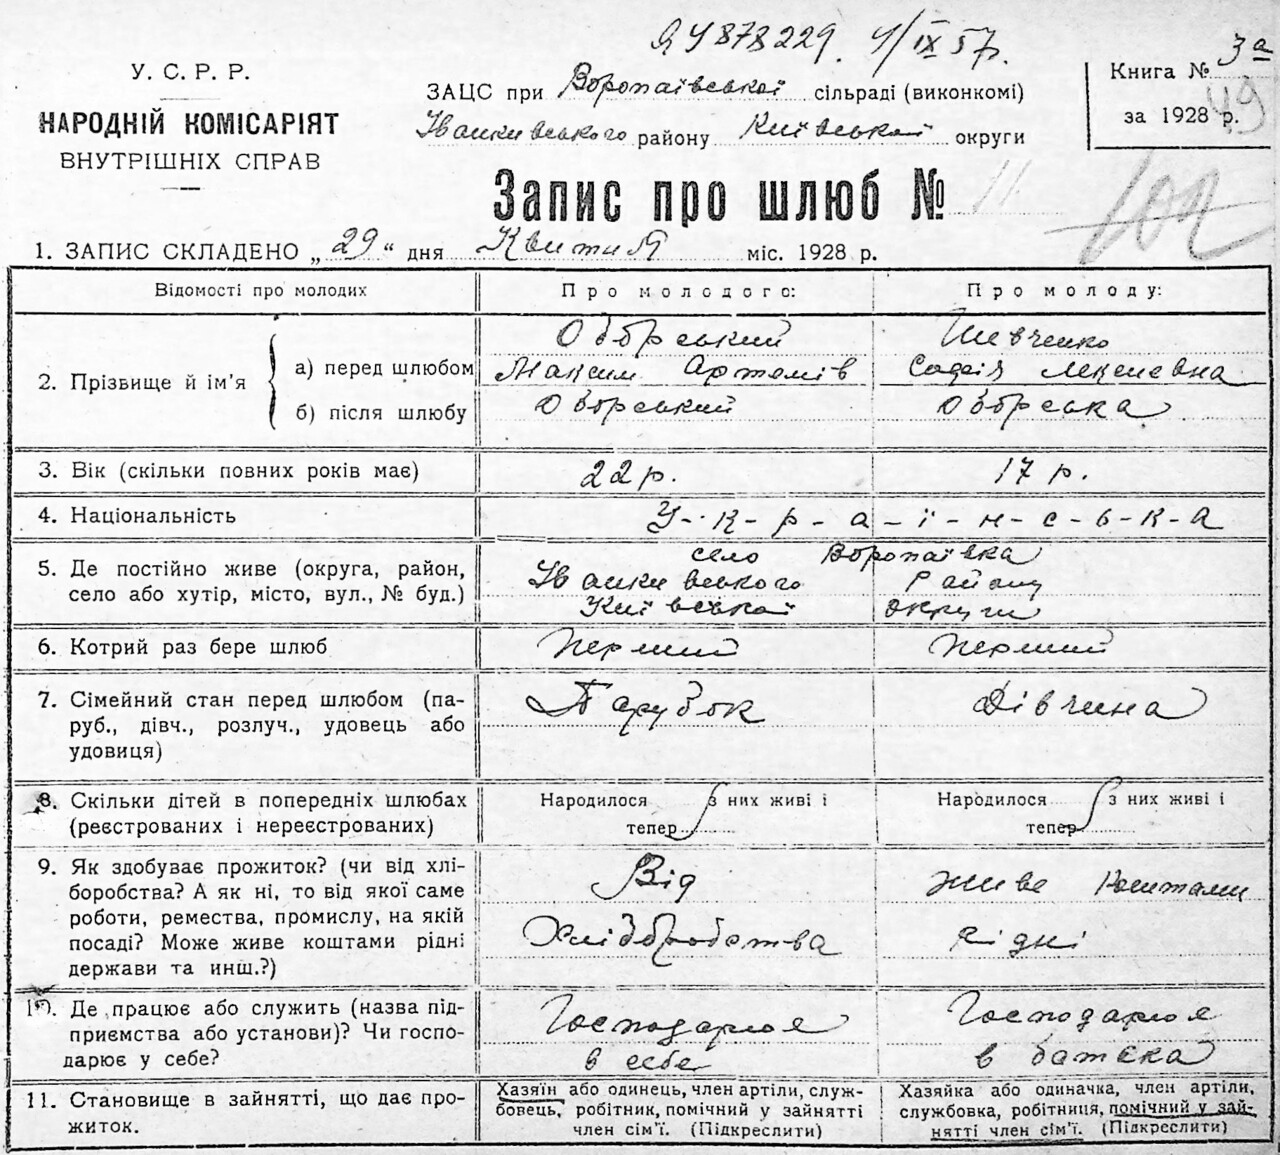 ЯУ 878229. 4/IX 57р.
У. С. Р. Р.
НАРОДНІЙ КОМІСАРІЯТ
ВНУТРІШНІХ СПРАВ
ЗАЦС при Воропаївської сільраді (виконкомі)
Іванківського району Київської округи
Книга № 3а
за 1928 р.
49
Запис про шлюб № 11
102
1. ЗАПИС СКЛАДЕНО „29“ дня Квітня міс. 1928 р.
Відомості про молодих
Про молодого:
Про молоду:
2. Прізвище й ім'я
а) перед шлюбом
Оборський
Максим Артомів
Шевченко
Софія
б) після шлюбу
Оборський
Оборська
3. Вік (скільки повних років має)
22 р.
17 р.
4. Національність
У-к-р-а-ї-н-с-ь-к-а
5. Де постійно живе (округа, район,
село або хутір, місто, вул., № буд.)
село Воропаївка
Іванківського Району
Київської округи
6. Котрий раз бере шлюб
Перший
Перший
7. Сімейний стан перед шлюбом (па-
руб., дівч., розлуч., удовець або
удовиця)
Парубок
Дівчина
8. Скільки дітей в попередніх шлюбах
(реєстрованих і нереєстрованих)
Народилося з них живі і
тепер
Народилося з них живі і
тепер
9. Як здобуває прожиток? (чи від хлі-
боробства? А як ні, то від якої саме
роботи, ремества, промислу, на якій
посаді? Може живе коштами рідні
держави та инш.?)
Від
Хліборобства
живе коштами
рідні
10. Де працює або служить (назва під-
приємства або установи)? Чи госпо-
дарює у себе?
Господарює
в себе
Господарює
в батька
11. Становище в зайнятті, що дає про-
житок.
Хазяїн або одинець, член артілі, служ-
бовець, робітник, помічний у зайнятті
член сім'ї. (Підкреслити)
Хазяйка або одиначка, член артілі,
службовка, робітниця, помічний у зай-
нятті член сім'ї. (Підкреслити)